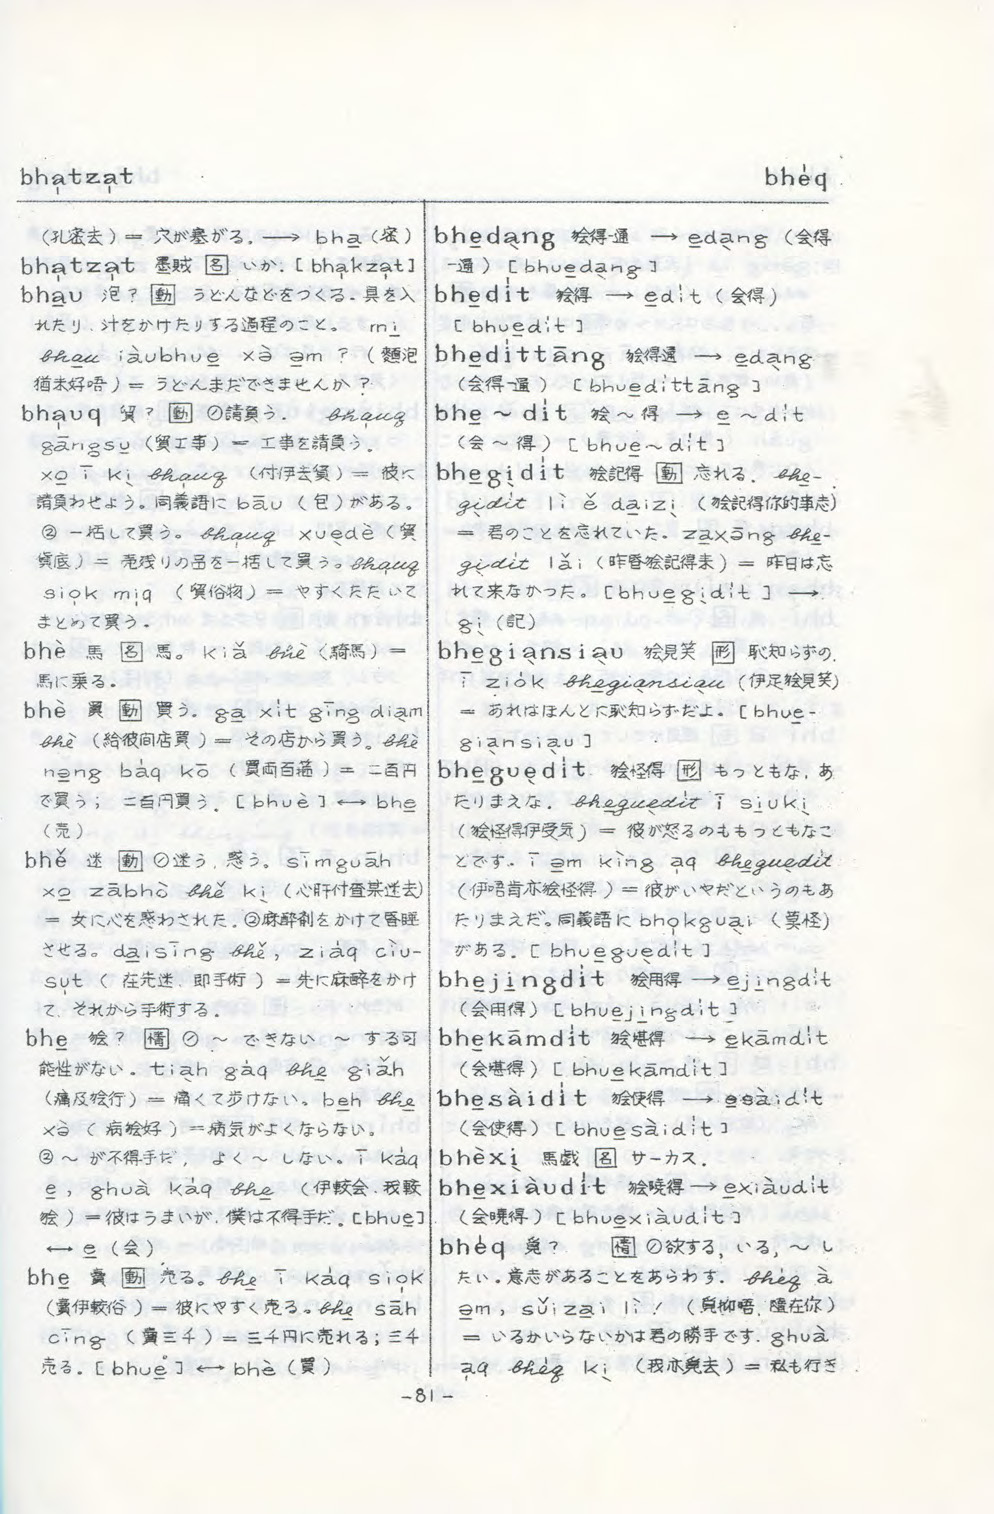 bha̍tza̍t
bhe̍q
(孔密去) = 穴が塞がる. → bha̱ (密)
bha̍tza̍t 墨賊 [名] いか. [bha̍kza̍t]
bha̱u 泡? [動] うどんなどをつくる. 具を入
れたり, 汁をかけたりする過程のこと。 mi̱
bha̱u iàubhue̱ xə̀ ə̱m ? (麵泡
猶未好唔) = うどんまだできませんか?
bha̍uq 貿? [動] ①請負う. bha̍uq
gāngsu̱ (貿工事) = 工事を請負う.
xo̱ ī ki̱ bha̍uq (付伊去貿) = 彼に
請負わせよう. 同義語に bāu (包) がある。
② 一括して買う。 bha̍uq xue̱dè (貿
貨底) = 売残りの品を一括して買う。 bha̍uq
sio̍k mi̍q (貿俗物) = やすくたたいて
まとめて買う.
bhè 馬 [名] 馬。 kiǎ bhè (騎馬) =
馬に乗る.
bhè 買 [動] 買う. ga̱ xit gīng dia̱m
bhè (給彼间店買) = その店から買う。 bhè
nəng bàq kō (買両百箍) = 二百円
で買う; 二百円買う. [bhuè] ←→ bhe̱
(売)
bhě 迷 [動] ①迷う, 惑う. sīmguāh
xo̱ zābhò bhě ki̱ (心肝付查某迷去)
= 女に心を惑わされた. ②麻酔剤をかけて昏睡
させる。 da̱isīng bhě, ziáq ciu-
su̍t (在先迷, 即手術) = 先に麻酔をかけ
て, それから手術する.
bhe̱ 𣍐? [情] ① ~ できない, ~ する可
能性がない. tia̱h gàq bhe̱ giǎh
(痛及𣍐行) = 痛くて歩けない. be̱h bhe̱
xə̀ (病𣍐好) = 病気がよくならない。
② ~ が不得手だ, よく ~ しない。 ī kàq
e̱, ghuà kàq bhe̱ (伊較会, 我較
𣍐) = 彼はうまいが, 僕は不得手だ。 [bhue̱]
←→ e̱ (会)
bhe̱ 賣 [動] 売る。 bhe̱ ī kàq sio̍k
(賣伊較俗) = 彼にやすく売る。 bhe̱ sāh
cīng (賣三千) = 三千円に売れる; 三千
売る. [bhue̱] ←→ bhè (買)
bhe̱da̱ng 𣍐得通 → e̱da̱ng (会得
通) [bhue̱da̱ng]
bhe̱di̍t 𣍐得 → e̱di̍t (会得)
[bhue̱di̍t]
bhe̱di̍ttāng 𣍐得通 → e̱da̱ng
(会得通) [bhue̱di̍ttāng]
bhe̱ ~ di̍t 𣍐 ~ 得 → e̱ ~ di̍t
(会 ~ 得) [bhue̱ ~ di̍t]
bhe̱gi̱di̍t 𣍐記得 [動] 忘れる. bhe̱-
gi̱di̍t lì ě da̱izi̱ (𣍐記得你的事志)
= 君のことを忘れていた. za̱xāng bhe̱-
gi̱di̍t lǎi (昨昏𣍐記得来) = 昨日は忘
れて来なかった。 [bhue̱gi̱di̍t] →
gi̱ (記)
bhe̱gia̱nsia̱u 𣍐見笑 [形] 恥知らずの.
ī zio̍k bhe̱gia̱nsia̱u (伊足𣍐見笑)
= あれはほんとに恥知らずだよ. [bhue̱-
gia̱nsia̱u]
bhe̱gue̱di̍t 𣍐怪得 [形] もっともな, あ
たりまえな. bhe̱gue̱di̍t ī siu̱ki̱
(𣍐怪得伊受気) = 彼が怒るのももっともなこ
とです. ī ə̱m kìng a̍q bhe̱gue̱di̍t
(伊唔肯亦𣍐怪得) = 彼がいやだというのもあ
たりまえだ。同義語に bho̍kgua̱i (莫怪)
がある. [bhue̱gue̱di̍t]
bhe̱ji̱ngdi̍t 𣍐用得 → e̱ji̱ngdi̍t
(会用得) [bhue̱ji̱ngdi̍t]
bhe̱kāmdi̍t 𣍐堪得 → e̱kāmdi̍t
(会堪得) [bhue̱kāmdi̍t]
bhe̱sàidi̍t 𣍐使得 → e̱sàidi̍t
(会使得) [bhue̱sàidi̍t]
bhèxi̱ 馬戯 [名] サーカス.
bhe̱xiàudi̍t 𣍐曉得 → e̱xiàudi̍t
(会曉得) [bhue̱xiàudi̍t]
bhe̍q ? [情] ①欲する, いる, ~ し
たい. 意志があることをあらわす. bhe̍q à
ə̱m, sǔiza̱i lì! (抑唔, 隨在你)
= いるかいらないかは君の勝手です. ghuà
a̍q bhe̍q ki̱ (我亦去) = 私も行き
-81-